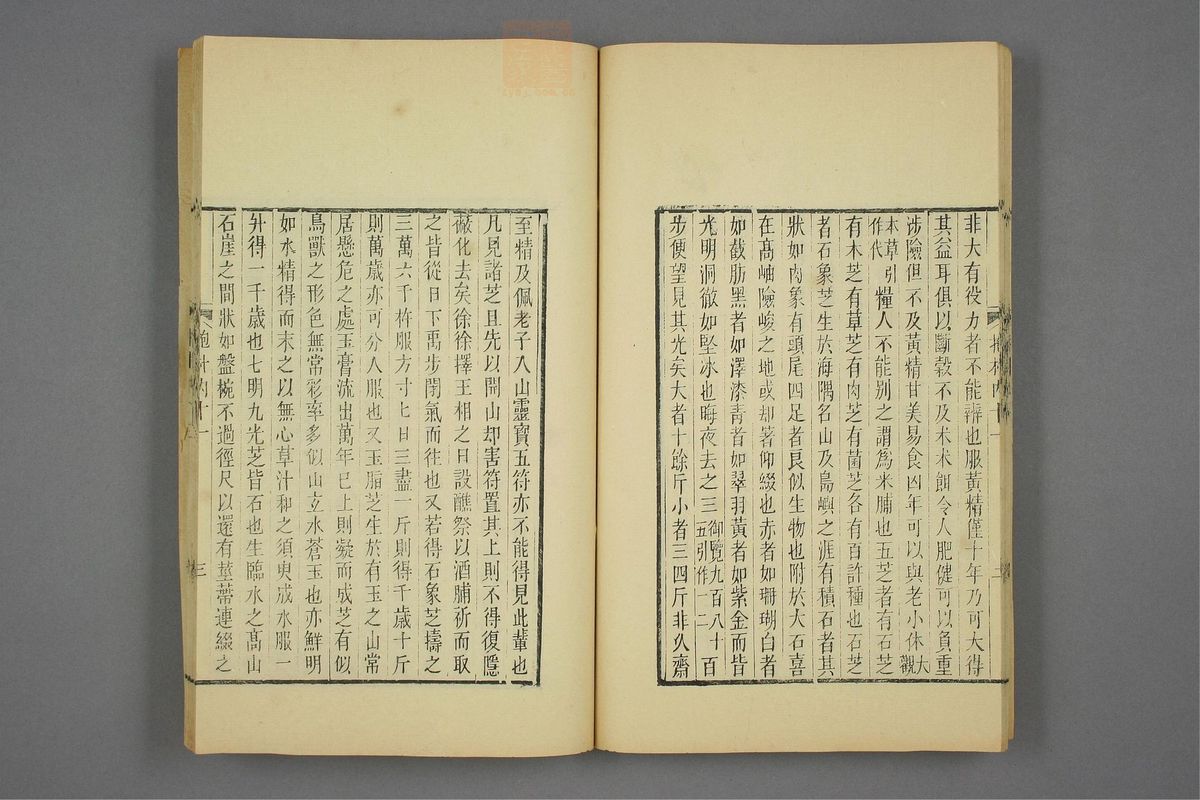 非大有役力者不能辨也服黃精僅十年乃可大得
其益耳俱以斷穀不及朮朮餌令人肥健可以負重
涉險但不及黃精甘美易食凶年可以與老小休大觀
本草引作代糧人不能別之謂為米脯也五芝者有石芝
有木芝有草芝有肉芝有菌芝各有百許種也石芝
者石象芝生於海隅名山及島嶼之涯有積石者其
狀如肉象有頭尾四足者良似生物也附於大石喜
在高岫險峻之地或却著仰綴也赤者如珊瑚白者
如截肪黑者如澤漆青者如翠羽黃者如紫金而皆
光明洞徹如堅冰也晦夜去之三御覽九百八十五引作一二百
步便望見其光矣大者十餘斤小者三四斤非久齋
至精及佩老子入山靈寶五符亦不能得見此輩也
凡見諸芝且先以開山却害符置其上則不得復隱
蔽化去矣徐徐擇王相之日設醮祭以酒脯祈而取
之皆從日下禹步閉氣而往也又若得石象芝擣之
三萬六千杵服方寸匕日三盡一斤則得千歲十斤
則萬歲亦可分人服也又玉脂芝生於有玉之山常
居懸危之處玉膏流出萬年已上則凝而成芝有似
鳥獸之形色無常彩率多似山玄水蒼玉也亦鮮明
如水精得而末之以無心草汁和之須臾成水服一
升得一千歲也七明九光芝皆石也生臨水之高山
石崖之間狀如盤椀不過徑尺以還有莖蔕連綴之
抱朴內十一
三